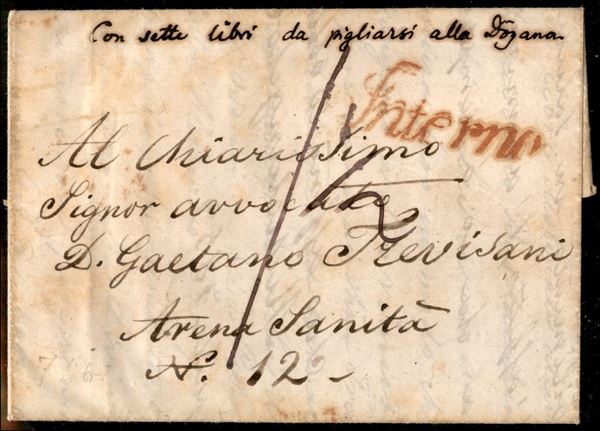 Con sette libri da pigliarsi alla Dogana
Interno
Al Chiarissimo
Signor avvocato
D. Gaetano Trevisani
Arena Sanità
N. 12
7 libri